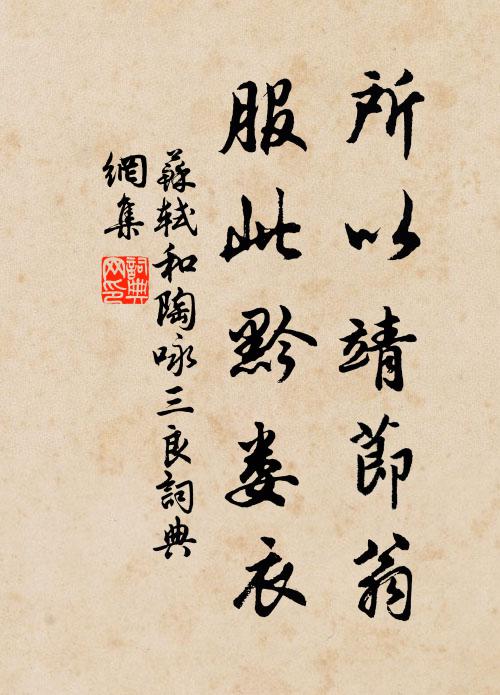 所以靖節翁
服此黔婁衣
蘇軾和陶咏三良詞典
網集
詞典
网印